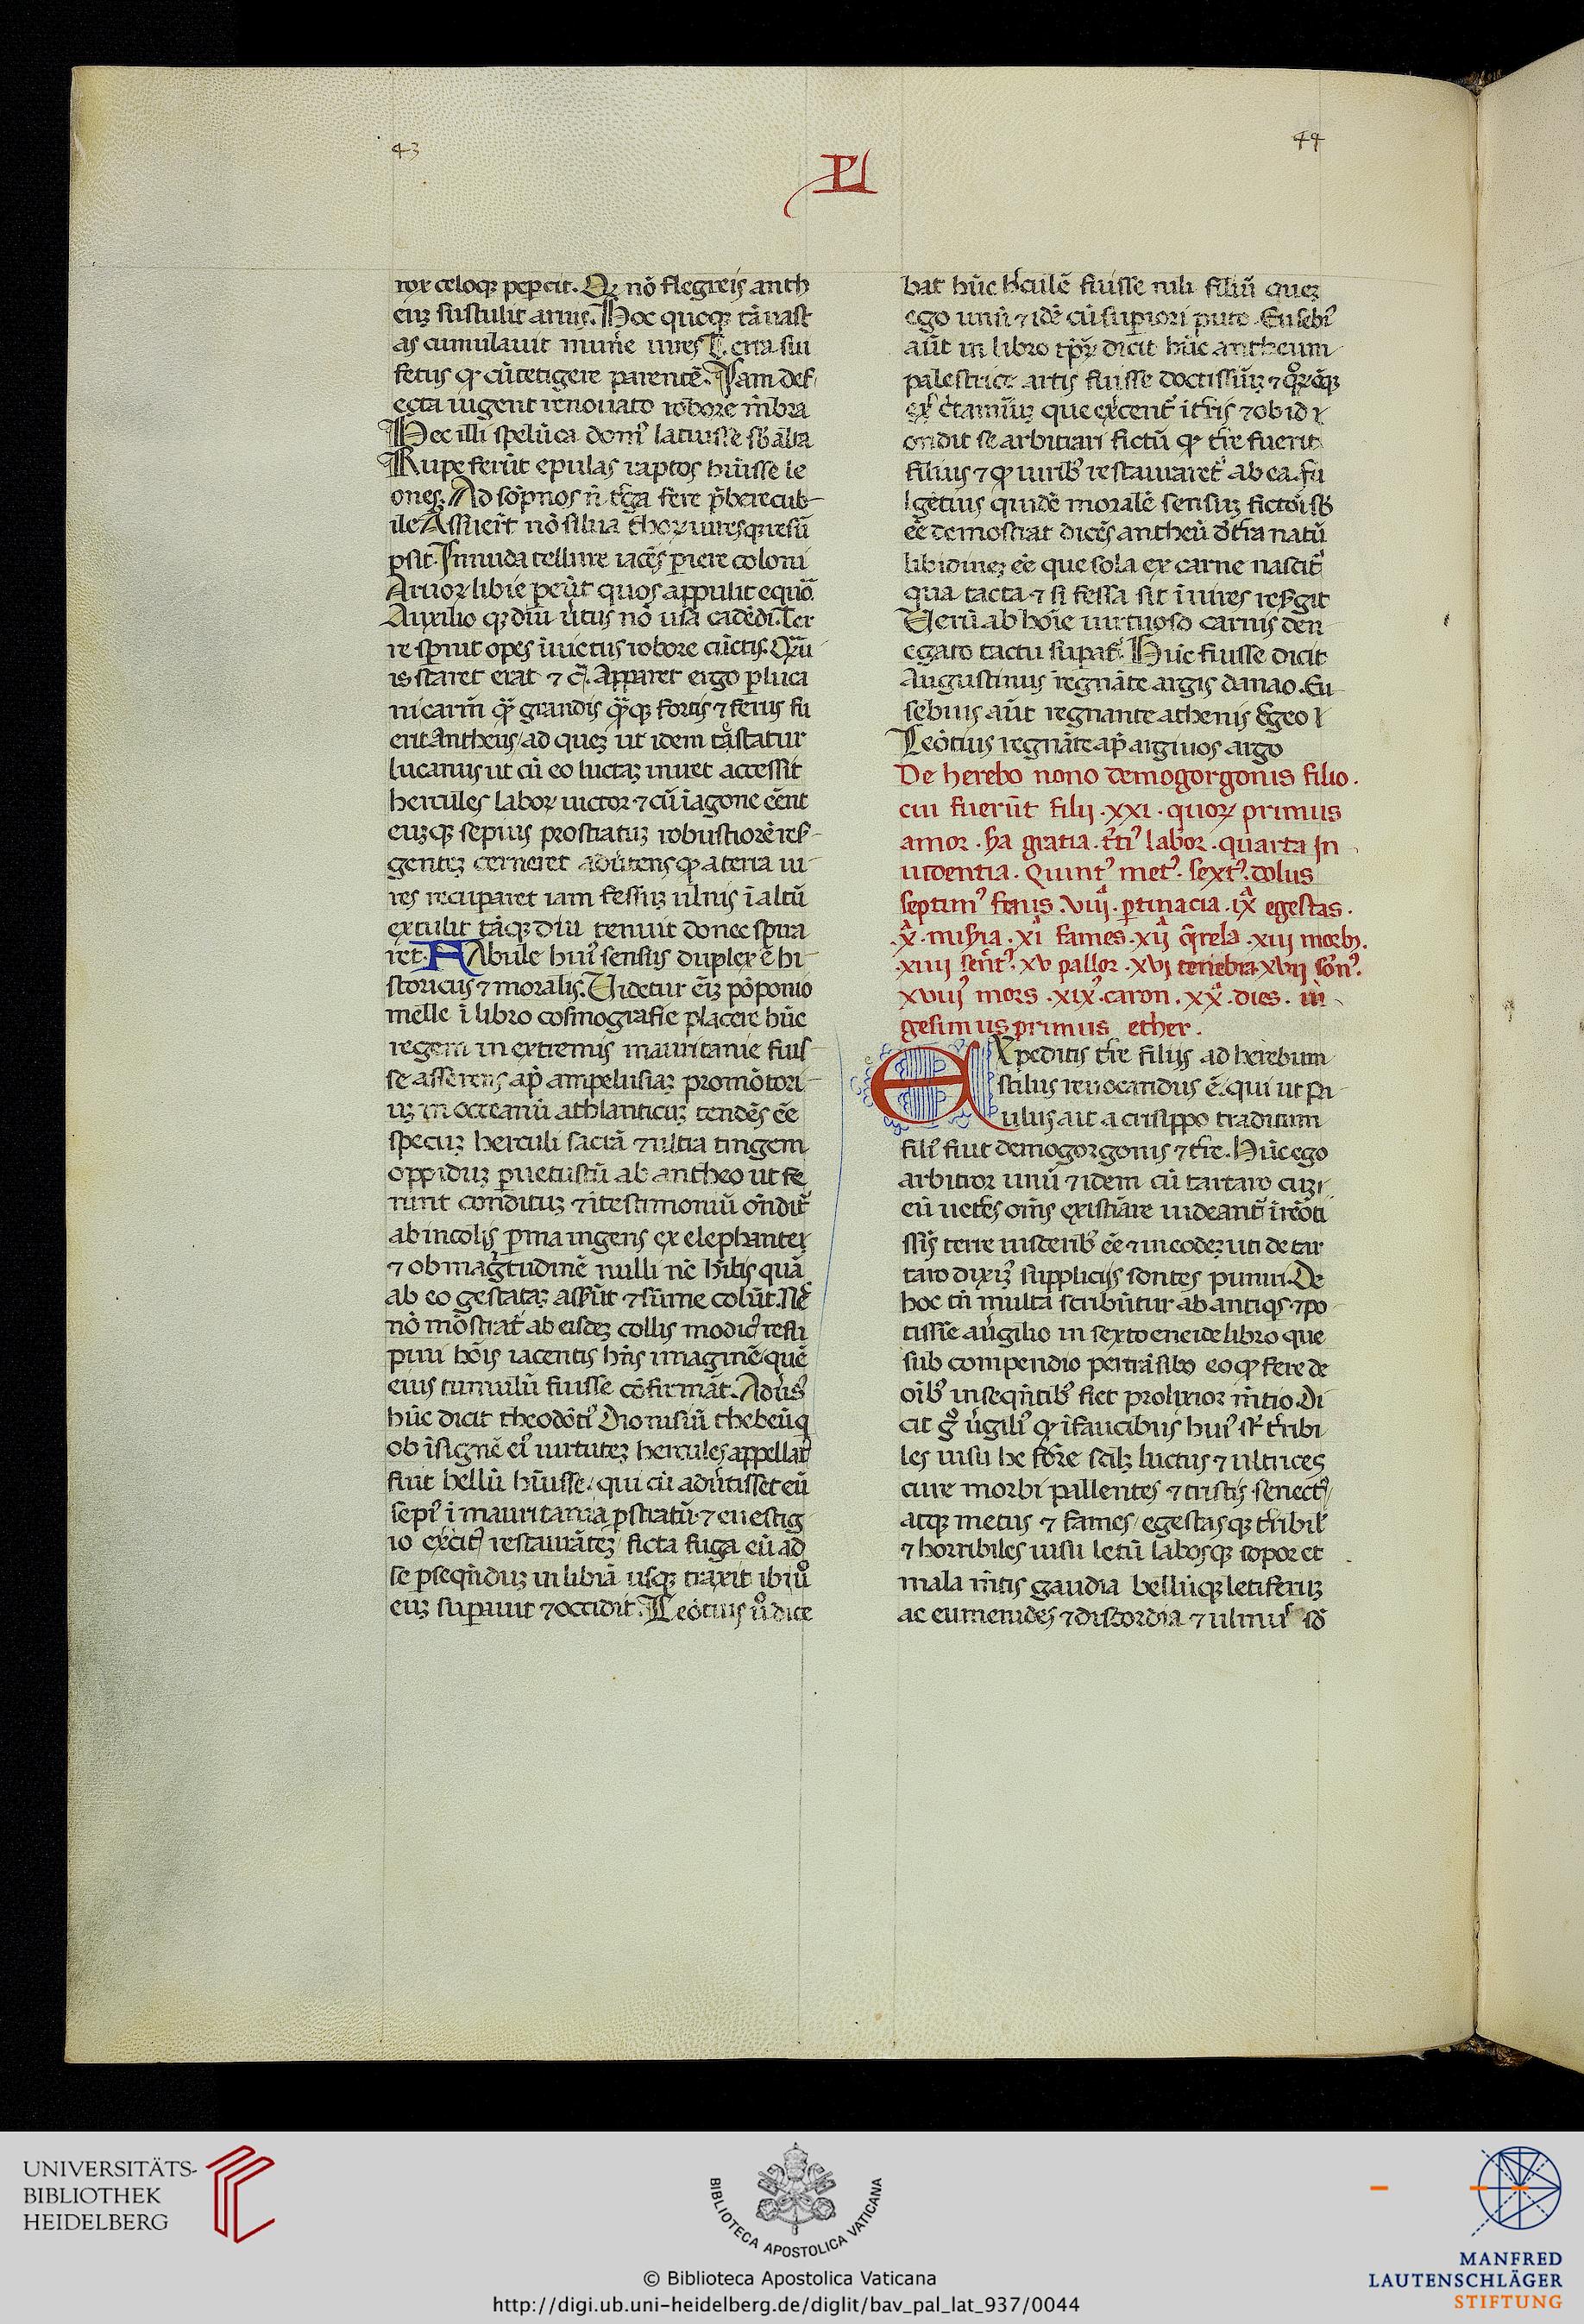 43
44
PI
rox celoqꝫ peꝑcit. Qꝫ nō flegreis anth
euꝫ sustulit aruis. Hoc quoqꝫ tā uast
as cumulauit mun̄e uires T. erra sui
fetus qͥ cū tetigere parentē. Jam def
ecta uigent renouato robore mēbra
Hec illi spelūca domꝰ latuisse sb̄ alta
Rupe ferūt epulas raptos hūisse le
ones. Ad sōpnos n̄ tͥga fere p̄bere cub
ile Assueūt nō silua thoꝝ uiresqꝫ resū
psit. In nuda tellure iacēs ꝑiere coloni
Aruoꝝ libie peūt quos appulit equoͬ
Auxilio qꝫ diu uͥtus nō usa cadēdi. Ter
re spernit opes īuictus robore cūctis. Qͣuū
is staret erat ⁊ c̄. Apparet ergo ꝑ luca
ni carm̄ qͣꝫ grandis qͣꝫqꝫ fortis ⁊ ferus fu
erit Antheus ad queꝫ ut idem tāstatur
lucanus ut cū eo luctaꝫ iniret accessit
hercules laboꝝ uictor ⁊ cū ī agone eēnt
euꝫqꝫ sepius prostratuꝫ robustiorē res̄
genteꝫ cerneret aduͥtens qͥ a terra ui
res recuparet iam fessuꝫ ulnis ī altū
extulit tāqꝫ diu tenuit donec spira
ret. FAbule huiꝰ sensus duplex ē hi
storicus ⁊ moralis. Uidetur eīꝫ pōponio
melle ī libro cosmografie placere hūc
regem in extremis mauritanie fuis
se asserens ap̄ ampelusiaꝫ promōtori
uꝫ in occeanū athlanticuꝫ tendēs eē
specuꝫ herculi sacrā ⁊ ultra tingem
oppiduꝫ ꝑuetustū ab antheo ut fe
runt condituꝫ ⁊ ī testimoniū ondit̄
ab incolis ꝑma ingens ex elephantex
⁊ ob magͥtudinē nulli nē hītis quā
ab eo gestataꝫ asserūt ⁊ sūme colūt. Nec
nō mōstrat̄ ab eisdeꝫ collis modicꝰ resu
pini hoīs iacentis hn̄s imaginē quē
eius tumulū fuisse cōfirmāt. Aduͥsꝰ
hūc dicit theodōtiꝰ Dionisiū thebeūꝗ
ob īsignē eiꝰ uirtuteꝫ hercules appellatꝰ
fuit bellū hūisse qui cū aduͥtisset eū
sepiꝰ ī mauritania ꝓstratū ⁊ euestig
io exercitꝰ restaurāteꝫ ficta fuga eū ad
se ꝑseqn̄duꝫ in libiā usqꝫ traxit ibi uͦ
euꝫ suꝑauit ⁊ occidit. Leōtius uͦ dice
bat hūc hͥculē fuisse nili filiū queꝫ
ego unū ⁊ idē cū suꝑiori puto. Eusebiꝰ
aūt in libro tꝑꝝ dicit hūc antheum
palestrice artis fuisse doctissimuꝫ
ondit se arbitrari fictū qͥ tͥre fuerit
filius ⁊ qͥ uiribꝰ restauraret̄ ab ea. fu
lgētius quidē moralē sensuꝫ fictōi sb̄
eē demōstrat dicēs antheū d̄ tͥra natū
libidineꝫ eē que sola ex carne nascit̄
qua tacta ⁊ si fessa sit ī uires resͥgit
Uerū ab hoīe uirtuoso carnis den
egato tactu suꝑat̄. Hūc fuisse dicit
Augustinus regnāte argis danao. Eu
sebius aūt regnante athenis Egeo
Leōtius regnāte ap̄ argiuos argo
De herebo nono demogorgonis filio.
cui fuerūt filij .xxi. quoꝝ primus
amor .ẜa gratia .tͥtiꝰ labor. quarta In
uidentia. Quintꝰ metꝰ. sextꝰ. dolus
septimꝰ fraus. viijͣ. ꝑtinacia. ixͣ egestas.
.xͣ. misͥia. xiͣ fames. xijͣ q̄rela. xiij morbꝰ.
.xiiij senctꝰ. xv pallor. xvj tenebra. xvij sōnꝰ.
xviijꝰ mors. xixꝰ. caron. xxͣ. dies. ui
gesimus primus ether.
EXpeditis tͥre filijs ad herebum
stilus reuocandus ē. qui ut pa
ulus ait a crisippo traditum
filiꝰ fuit demogorgonis ⁊ tͥre. Hūc ego
arbitror unū ⁊ idem cū tartaro cuꝫ
eū uetēs om̄s existīare uideant̄ ī remōti
ssīs terre uisceribꝰ eē ⁊ in eodeꝫ uti de tar
taro dixiꝰ supplicijs sontes puniri. De
hoc tn̄ multa scribūtur ab antiqꝭ ⁊ po
tissīe a uͥgilio in sexto eneide libro que
sub compendio pertrāsibo eo qͥ fere de
oībꝰ inseqn̄tibꝰ fiet prolixior m̄tio. Di
cit gͦ uͥgiliꝰ qͥ ī faucibus huiꝰ st̄ tͥribi
les uisu he forme sciliꝫ luctus ⁊ ultrices
cure morbi pallentes ⁊ tristis senectꝰ
atqꝫ metus ⁊ fames egestasqꝫ tͥribilꝭ
⁊ horribiles uisu letū labosqꝫ sopor et
mala m̄tis gaudia bellūqꝫ letiferuꝫ
ac eumenides ⁊ discordia ⁊ ulmuꝰ sō
UNIVERSITÄTS-
BIBLIOTHEK
HEIDELBERG
BIBLIOTECA APOSTOLICA VATICANA
© Biblioteca Apostolica Vaticana
http://digi.ub.uni-heidelberg.de/diglit/bav_pal_lat_937/0044
MANFRED
LAUTENSCHLÄGER
STIFTUNG